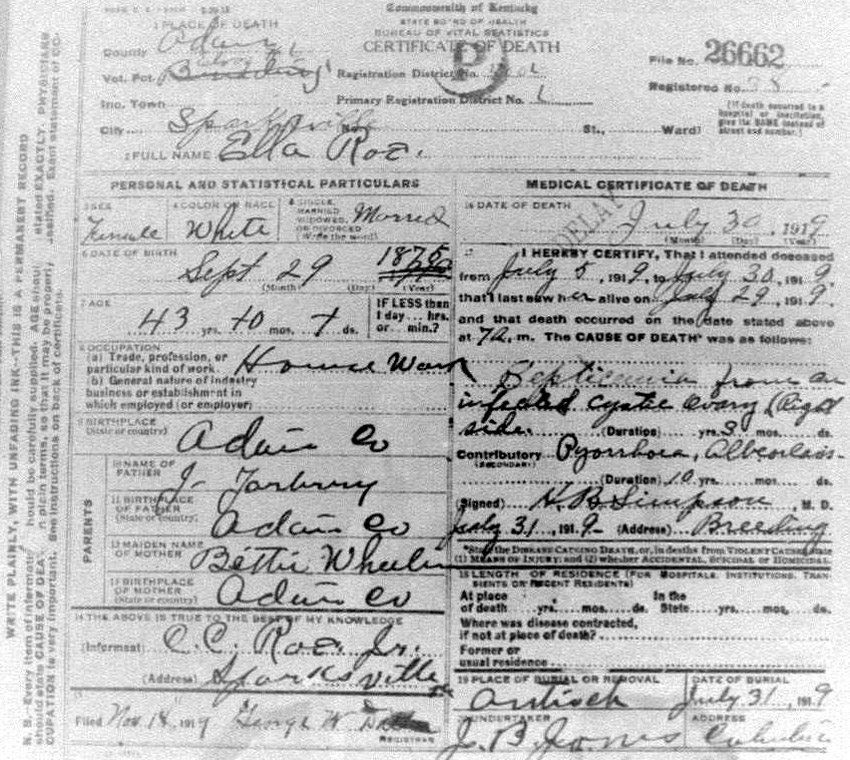 Commonwealth of Kentucky
STATE BOARD OF HEALTH
BUREAU OF VITAL STATISTICS
CERTIFICATE OF DEATH
1 PLACE OF DEATH
County Adair
Vot. Pct.
Inc. Town
City Sparksville No. St., Ward)
Registration District No.
Primary Registration District No.
File No. 26662
Registered No. 28
(If death occurred in a hospital or institution, give its NAME instead of street and number.)
2 FULL NAME Ella Roe.
PERSONAL AND STATISTICAL PARTICULARS
3 SEX
Female
4 COLOR OR RACE
White
5 SINGLE, MARRIED WIDOWED, OR DIVORCED (Write the word)
Married
6 DATE OF BIRTH
Sept 29 1875
(Month) (Day) (Year)
7 AGE
43 yrs. 10 mos. ds.
IF LESS than
1 day ... hrs.
or ... min.?
8 OCCUPATION
(a) Trade, profession, or
particular kind of work House Work
(b) General nature of industry
business or establishment in
which employed (or employer)
9 BIRTHPLACE
(State or country) Adair Co
PARENTS
10 NAME OF FATHER
J.
11 BIRTHPLACE OF FATHER
(State or country) Adair Co
12 MAIDEN NAME OF MOTHER
Bettie
13 BIRTHPLACE OF MOTHER
(State or country) Adair Co
14 THE ABOVE IS TRUE TO THE BEST OF MY KNOWLEDGE
(Informant) C. C. Roe Jr.
(Address) Sparksville
15
Filed Nov 18, 1919 George W.
REGISTRAR
MEDICAL CERTIFICATE OF DEATH
16 DATE OF DEATH
DELAY
July 30, 1919
(Month) (Day) (Year)
17 I HEREBY CERTIFY, That I attended deceased
from July 5, 1919, to July 30, 1919,
that I last saw her alive on July 29, 1919.
and that death occurred on the date stated above
at 7a. m. The CAUSE OF DEATH* was as follows:
Septicemia from an
infected cystic ovary (Right
side. (Duration) yrs. 3 mos. ds.
Contributory Pyorrhoea,
(SECONDARY)
(Duration) 10 yrs. mos. ds.
(Signed) H. B. Simpson, M. D.
July 31, 1919 (Address) Breeding
*State the DISEASE CAUSING DEATH, or, in deaths from VIOLENT CAUSES state
(1) MEANS OF INJURY; and (2) whether ACCIDENTAL, SUICIDAL or HOMICIDAL
18 LENGTH OF RESIDENCE (FOR HOSPITALS, INSTITUTIONS, TRANSIENTS OR RECENT RESIDENTS)
At place of death yrs. mos. ds. In the State yrs. mos. ds.
Where was disease contracted,
if not at place of death?
Former or
usual residence
19 PLACE OF BURIAL OR REMOVAL
Antioch
DATE OF BURIAL
July 31, 1919
20 UNDERTAKER
J. B. Jones
ADDRESS
Columbia
WRITE PLAINLY, WITH UNFADING INK--THIS IS A PERMANENT RECORD